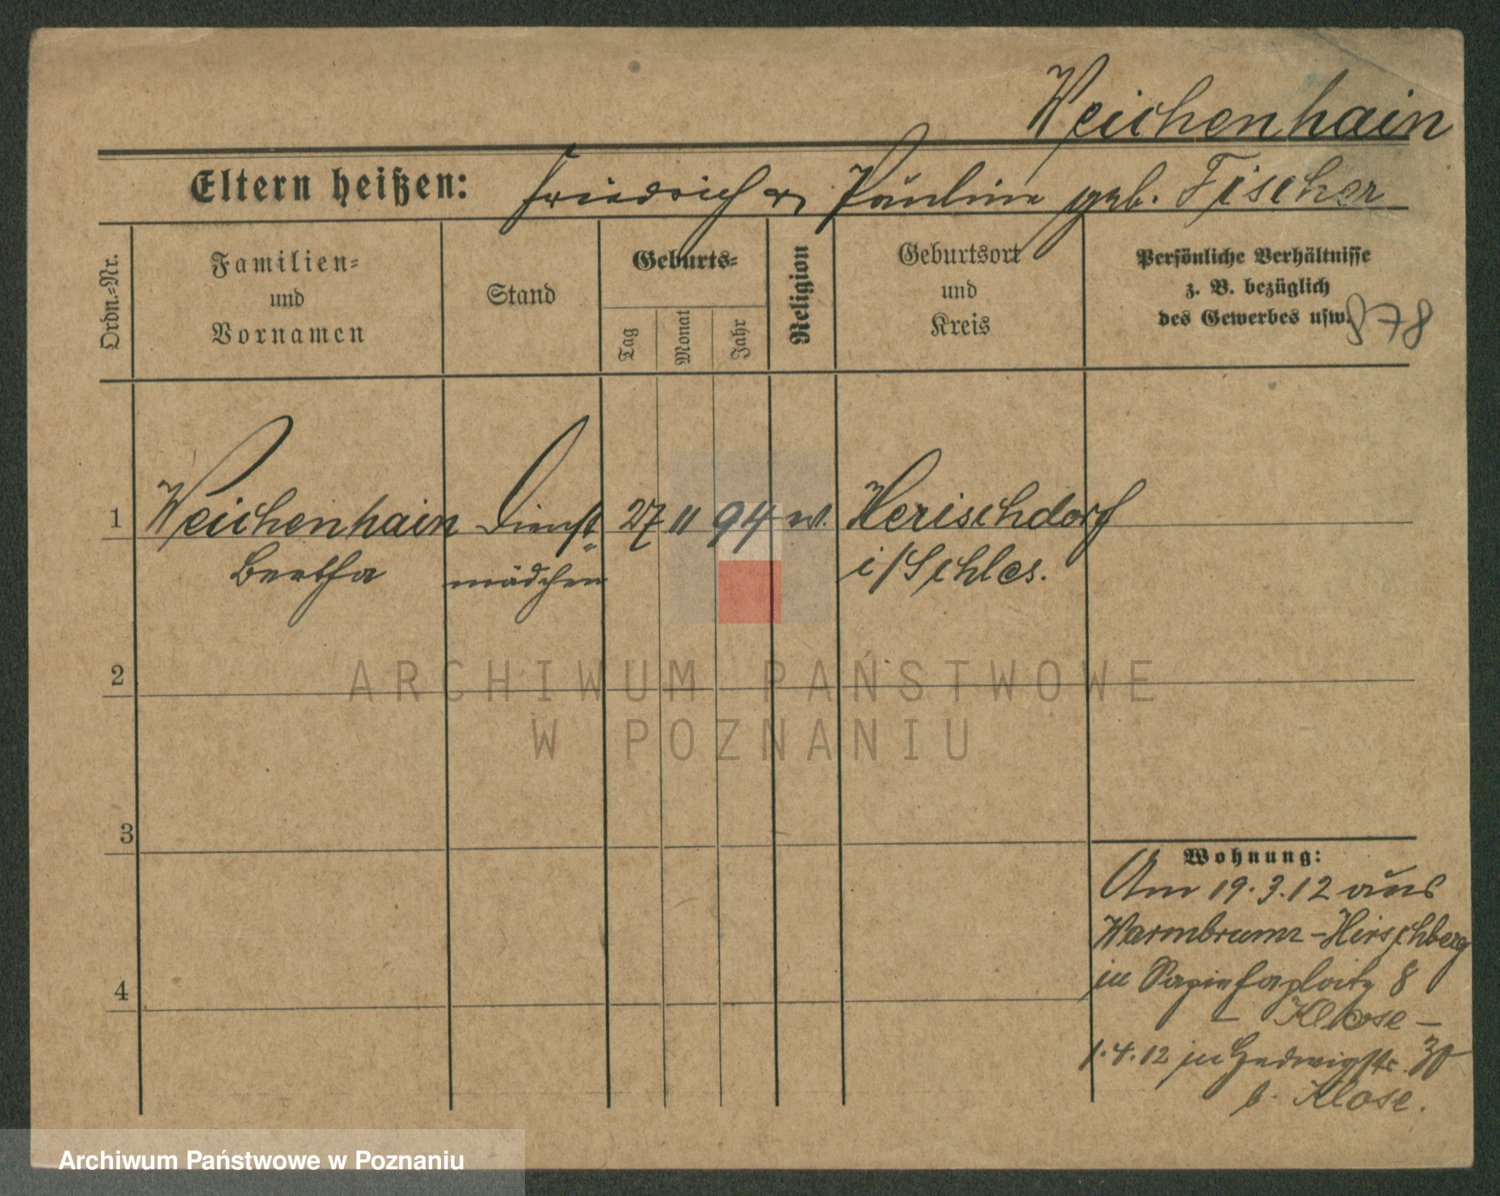 Weichenhain
Eltern heißen: Friedrich u. Pauline geb. Fischer
Ordn.-Nr.
Familien-
und
Vornamen
Stand
Geburts-
Tag
Monat
Jahr
Religion
Geburtsort
und
Kreis
Persönliche Verhältnisse
z. B. bezüglich
des Gewerbes usw.
878
1 Weichenhain Dienst- 27 11 94 ev. Herischdorf
Bertha mädchen i/Schles.
2
ARCHIWUM PAŃSTWOWE
W POZNANIU
3
Wohnung:
Am 19.3.12 aus
Warmbrunn-Hirschberg
in Sapiehaplatz 8
– Klose –
4
1.4.12 in Hedwigstr. 30
b. Klose.
Archiwum Państwowe w Poznaniu